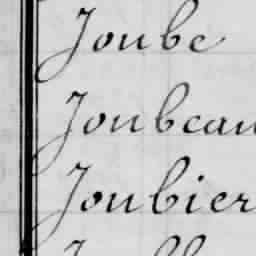 Joube
Joubeau
Joubier